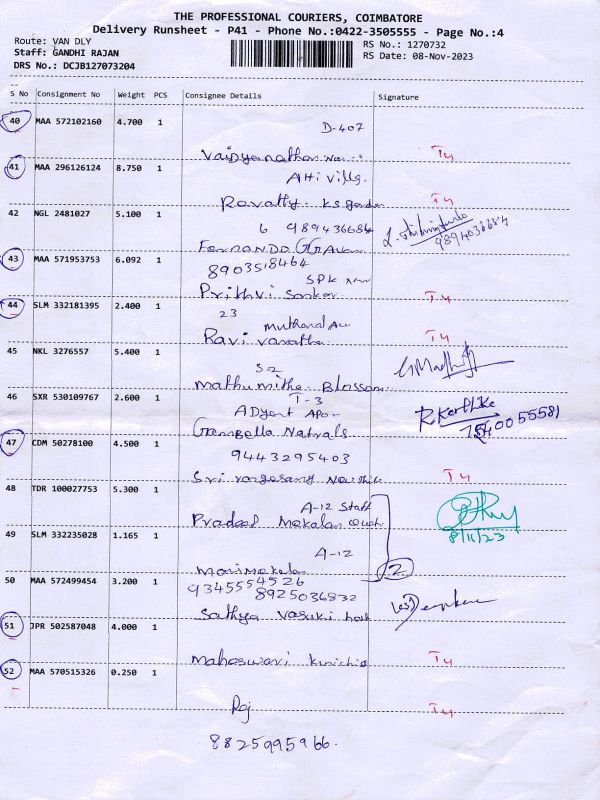 THE PROFESSIONAL COURIERS, COIMBATORE
Delivery Runsheet - P41 - Phone No.:0422-3505555 - Page No.:4
Route: VAN DLY
RS No.: 1270732
Staff: GANDHI RAJAN
RS Date: 08-Nov-2023
DRS No.: DCJB127073204
S No Consignment No Weight PCS Consignee Details Signature
40 MAA 572102160 4.700 1 D-407
Vaidyanathan
T4
41 MAA 296126124 8.750 1
Revathy KS garden
T4
42 NGL 2481027 5.100 1 6 989436684
9894036684
FERNANDO
43 MAA 571953753 6.092 1 8903518464
Prithvi Sankar
T4
44 SLM 332181395 2.400 1 23
Ravi
T4
45 NKL 3276557 5.400 1 S2
Mathumitha Blossom
46 SXR 530109767 2.600 1 T-3
R Karthike
7540055581
47 CDM 50278100 4.500 1 9443295403
Sri
T4
48 TDR 100027753 5.300 1 A-12 Staff
Pradeep
8/11/23
49 SLM 332235028 1.165 1 A-12
2
50 MAA 572499454 3.200 1 9345554526
8925036832
Sathya Vasuki
51 JPR 502587048 4.000 1
Maheswari
T4
52 MAA 570515326 0.250 1
Raj
T4
8825995966.